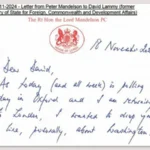 11-2024 - Letter from Peter Mandelson to David Lammy (former
ry of State for Foreign, Commonwealth and Development Affairs)
The Rt Hon the Lord Mandelson PC
18 November
Dear David,
As today (and all week) is polling
day in Oxford and I am returning
to London, I wanted to drop you
a line, privately, about Washington